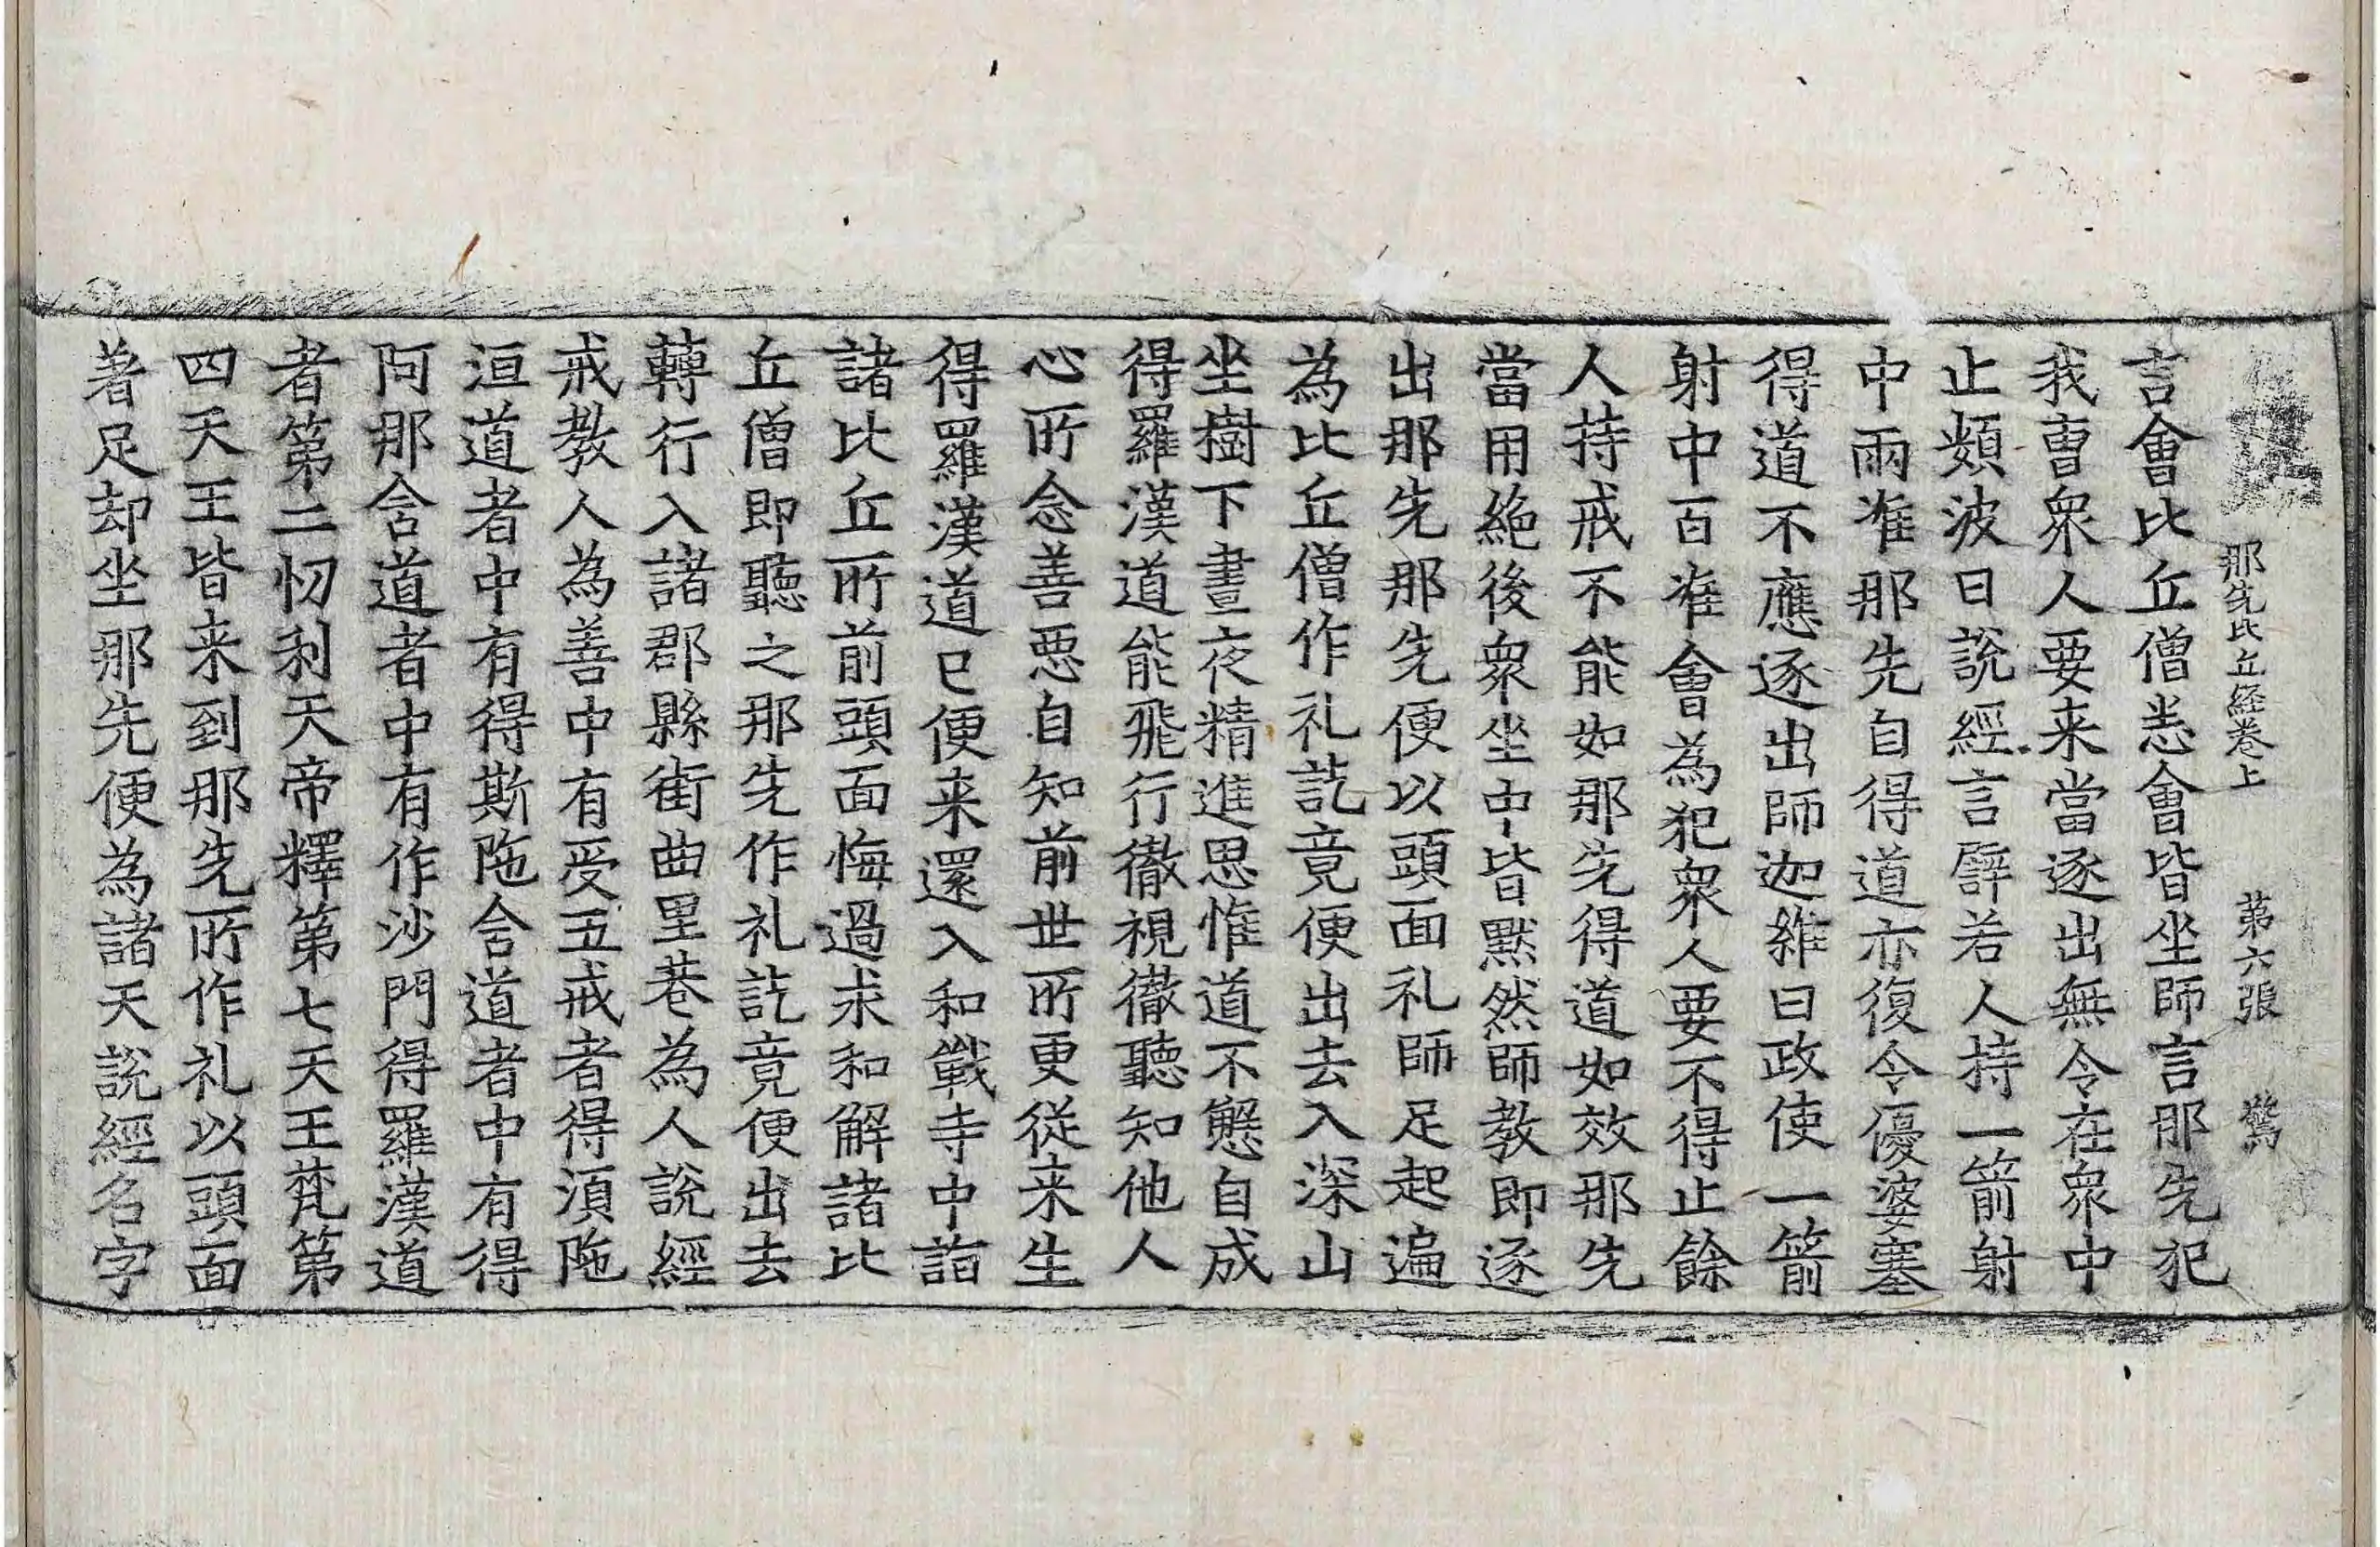 那先比丘經卷上 第六張 驚
言會比丘僧悉會皆坐師言那先犯
我曹衆人要来當逐出無令在衆中
止頞波曰說經言辟若人持一箭射
中兩准那先自得道亦復令優婆塞
得道不應逐出師迦維曰政使一箭
射中百准會為犯衆人要不得止餘
人持戒不能如那先得道如效那先
當用絶後衆坐中皆黙然師教即逐
出那先那先便以頭面礼師足起遍
為比丘僧作礼訖竟便出去入深山
坐樹下晝夜精進思惟道不懈自成
得羅漢道能飛行徹視徹聽知他人
心所念善惡自知前世所更從来生
得羅漢道已便来還入和戰寺中詣
諸比丘所前頭面悔過求和解諸比
丘僧即聽之那先作礼訖竟便出去
轉行入諸郡縣街曲里巷為人說經
戒教人為善中有受五戒者得湏陁
洹道者中有得斯陁含道者中有得
阿那含道者中有作沙門得羅漢道
者第二忉利天帝釋第七天王梵第
四天王皆来到那先所作礼以頭面
著足却坐那先便為諸天說經名字